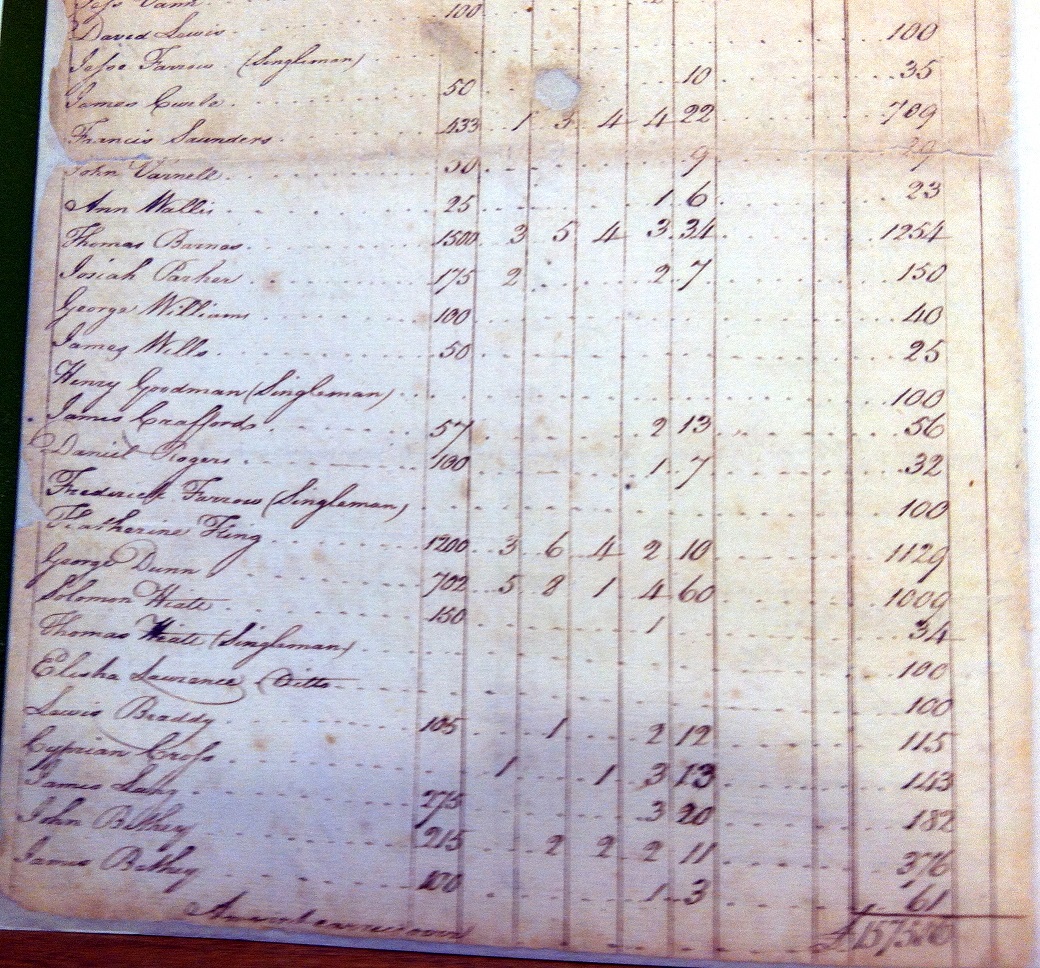 Jesse Vann 100
David Lewis 100
Jesse Farrow (Singleman) 10 35
James Curle 50
Francis Saunders 433 1 3 4 4 22 709
John Varnell 50 9 29
Ann Wallis 25 1 6 23
Thomas Barnes 1500 3 5 4 3 34 1254
Josiah Parker 175 2 2 7 150
George Williams 100 40
James Wills 50 25
Henry Goodman (Singleman) 100
James Crafford 57 2 13 56
Daniel Rogers 100 1 7 32
Frederick Farrow (Singleman) 100
Katherine King 1200 3 6 4 2 10 1129
George Dunn 702 5 8 1 4 60 1009
Solomon Hiate 150 1 34
Thomas Hiate (Singleman) 100
Elisha Lawrance (Ditto 100
Lewis Braddy 105 1 2 12 115
Cyprian Cross 1 1 3 13 143
James Lang 275 3 20 182
John Bethey 215 2 2 2 11 376
James Bethey 100 1 3 61
Amount carried over